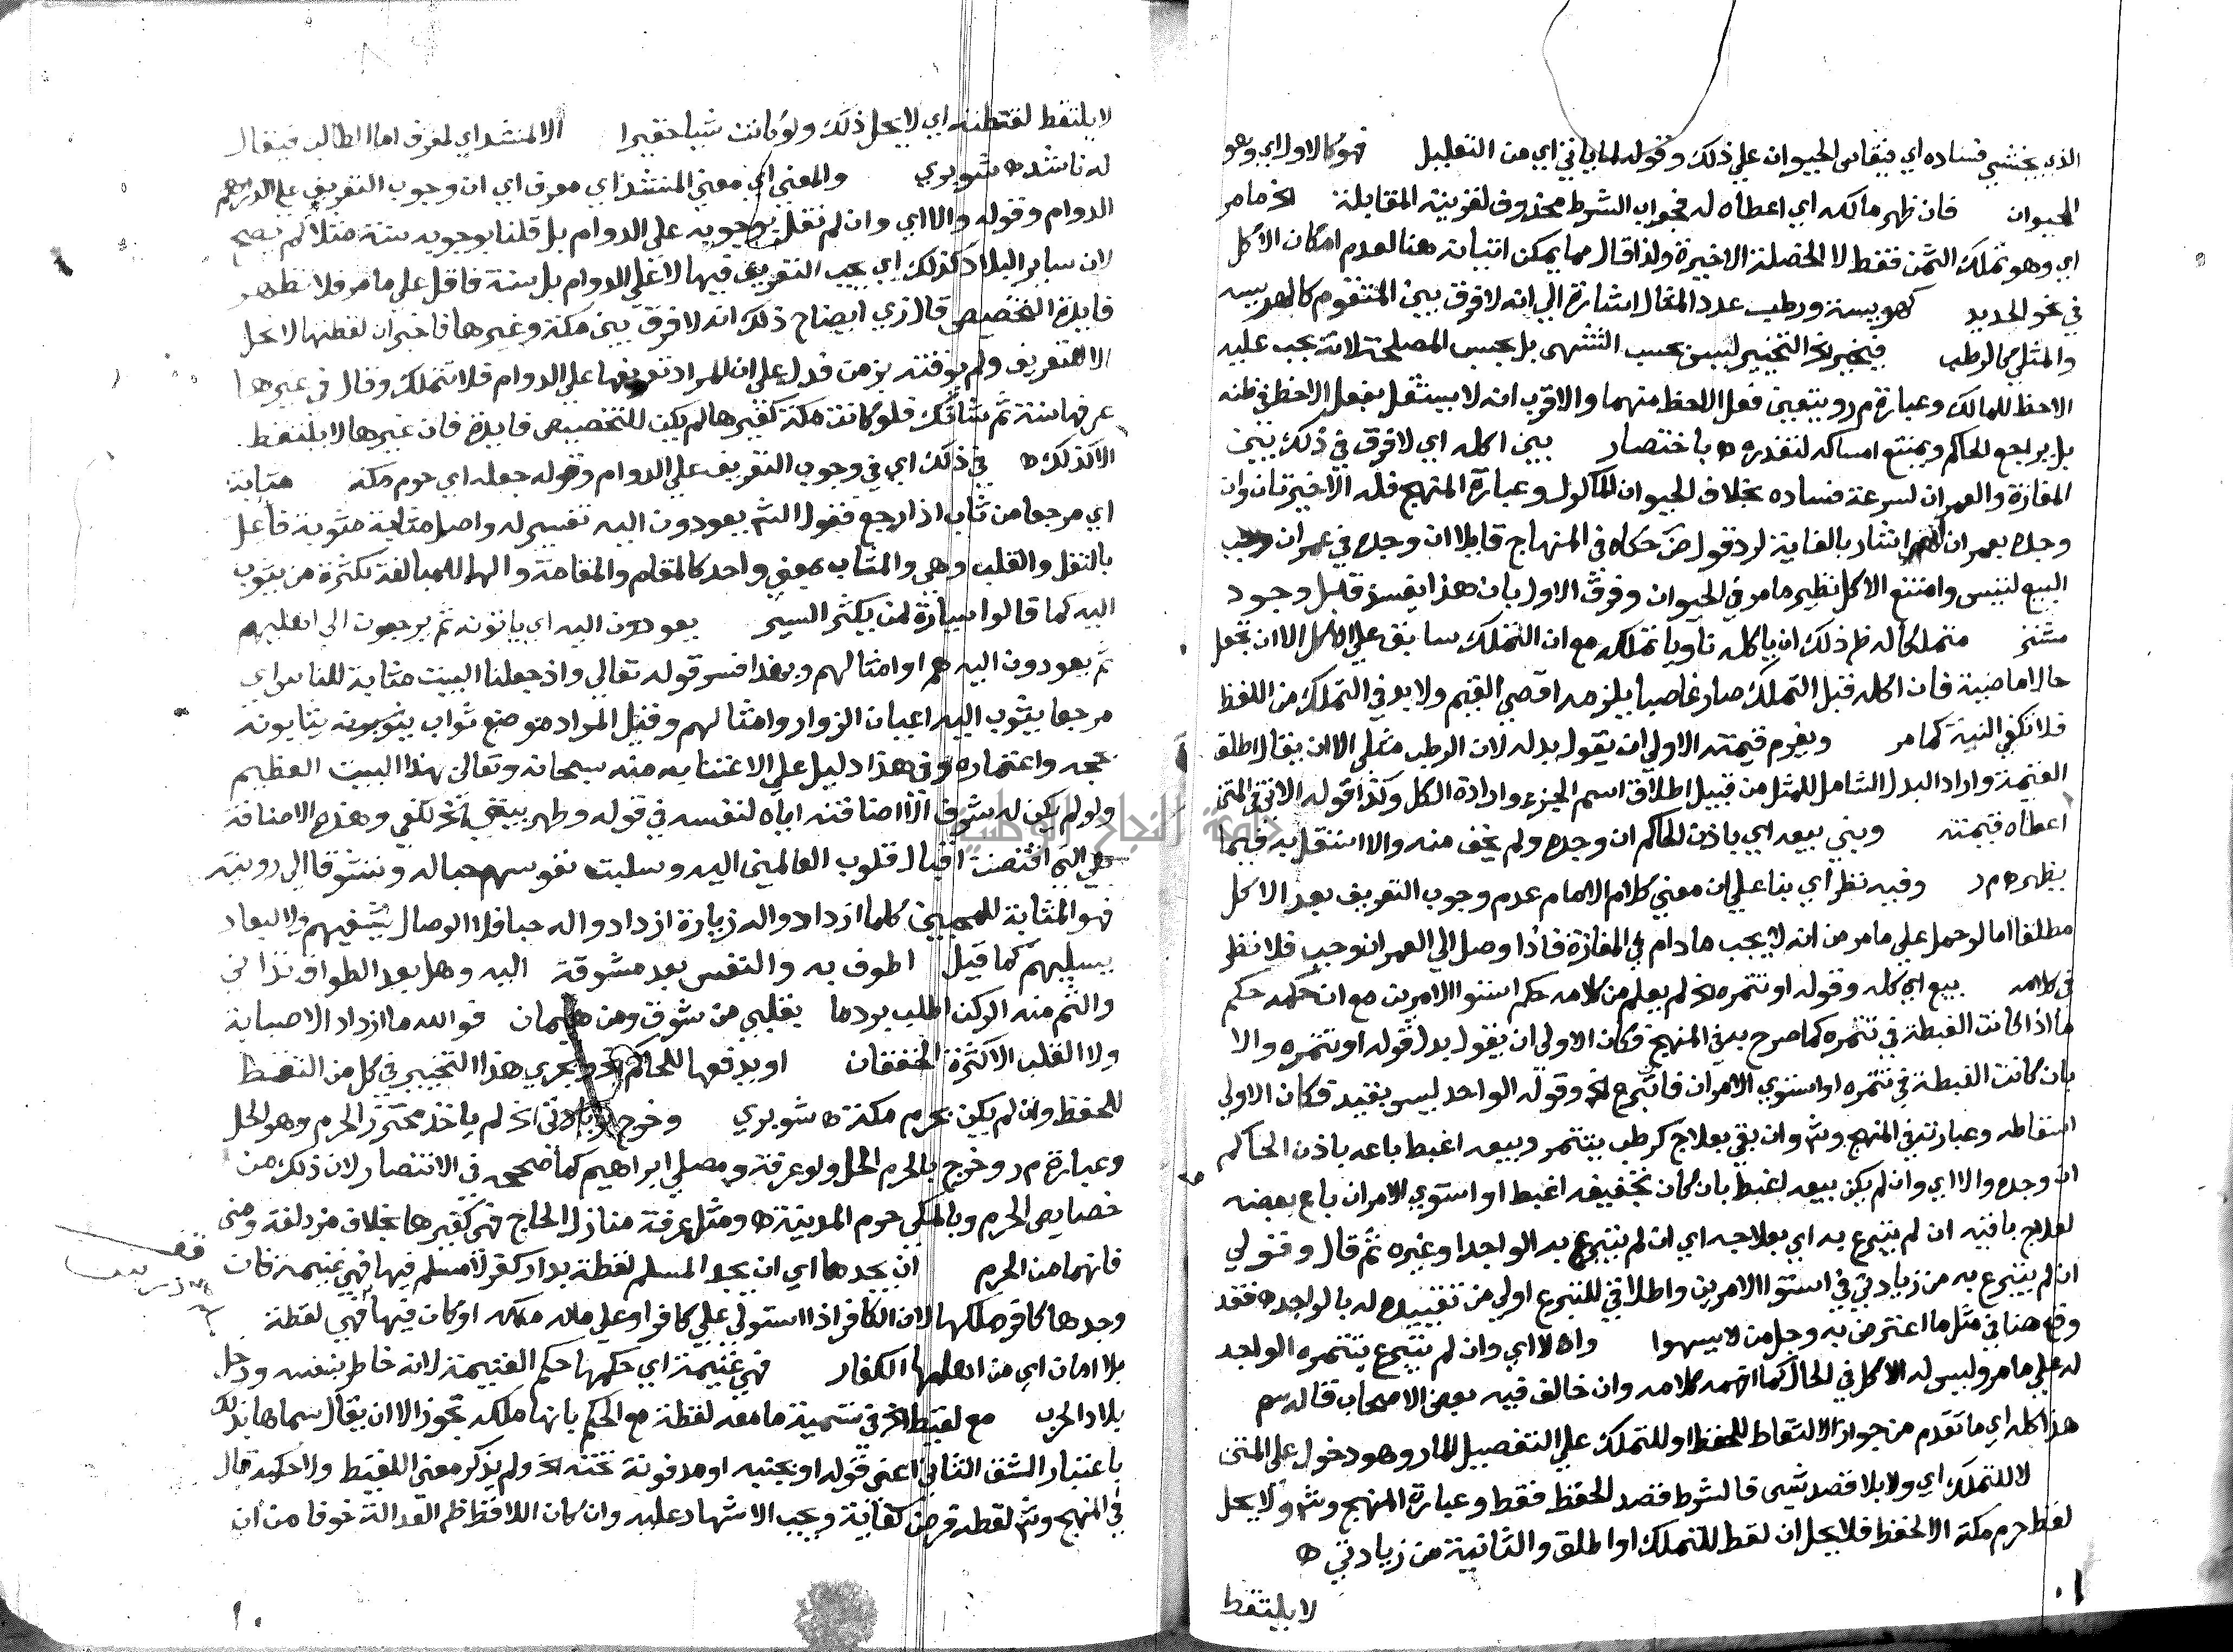 الذي يخشى فساده اي يقاس الحيوان علي ذلك وقوله لما ياتي اي من التعليل فهو كالاول اي وهو
الحيوان فان ظهر مالكه اي اعطاه له فجواب الشرط محذوف لقرينة المقابلة الخ ما مر
اي وهو تملك الثمن فقط لا الخصلة الاخيرة ولذا قال مما يمكن اتيانه هنا لعدم امكان الاكل
في نحو الحديد كهريسة ورطب عدد المثال اشارة الي انه لا فرق بين المتقوم كالهريسة
والمثلي كالرطب فيتخير الخ التخيير ليس بحسب التشهي بل بحسب المصلحة لانه يجب عليه
الاحظ للمالك وعبارة م ر ويتعين فعل الاحظ منهما والاقرب انه لا يستقل بفعل الاحظ في ظنه
بل يراجع الحاكم ويمتنع امساكه لتعذره ه باختصار بين اكله اي لا فرق في ذلك بين
المفازة والعمران لسرعة فساده بخلاف الحيوان الماكول وعبارة المنهج فله الاخيرتان وان
وجده بعمران اشار بالغاية لرد قول ض حكاه في المنهاج قايلا ان وجده في عمران وجب
البيع لتيسره وامتنع الاكل نظير ما مر في الحيوان وفرق الاول بان هذا يفسد قبل وجود
مشتر متملكا له ظ ذلك ان ياكله ناويا تملكه مع ان التملك سابق علي الاكل الا ان تجعل
حالا ماضية فان اكله قبل التملك صار غاصبا يلزمه اقصي القيم ولا بد في التملك من اللفظ
فلا تكفي النية كما مر ويغرم قيمته الاولي ان يقول بدله لان الرطب مثلي الا ان يقال اطلق
القيمة واراد البدل الشامل للمثل من قبيل اطلاق اسم الجزء وارادة الكل وكذا قوله الاتي في المتن
اعطاه قيمته وبني بيعه اي باذن الحاكم ان وجده ولم يخف منه والا استقل به فيما
يظهر ه م ر وفيه نظر اي بنا علي ان معني كلام الامام عدم وجوب التعريف بعد الاكل
مطلقا اما لو حمل علي ما مر من انه لا يجب ما دام في المفازة فاذا وصل الي العمران وجب فلا نظر
في كلامه بيع اي كله وقوله او تتمره الخ لم يعلم من كلامه حكم استوا الامرين مع ان حكمه حكم
ما اذا كانت الغبطة في تتمره كما صرح به في المنهج فكان الاولي ان يقول بدل قوله او تتمره والا
بان كانت الغبطة في تتمره او استوي الامران فان تبرع الخ وقوله الواحد ليس بقيد فكان الاولي
اسقاطه وعبارته في المنهج وش وان بقي بعلاج كرطب يتتمر وبيعه اغبط باعه باذن الحاكم
ان وجده والا اي وان لم يكن بيعه اغبط بان كان تجفيفه اغبط او استوي الامران باع بعضه
لعلاج باقيه ان لم يتبرع به اي بعلاجه اي ان لم يتبرع به الواجد او غيره ثم قال وقولي
ان لم يتبرع به من زيادتي في استوا الامرين واطلاقي للتبرع اولي من تقييده له بالواجد ه فقد
وقع هنا في مثل ما اعترض به وجل من لا يسهوا والا اي وان لم يتبرع بتتمره الواجد
له علي ما مر وليس له الاكل في الحال كما افهمه كلامه وان خالف فيه بعض الاصحاب قاله سم
هذا كله اي ما تقدم من جواز الالتقاط للحفظ او للتملك علي التفصيل المار وهو دخول علي المتن
لا للتملك اي ولا بلا قصد شي فالشرط قصد الحفظ فقط وعبارة المنهج وش ولا يحل
لقط حرم مكة الا لحفظ فلا يحل ان لقط للتملك او اطلق والثانية من زيادتي ه
لا يلتقط
لا يلتقط لقطته اي لا يحل ذلك ولو كانت شيا حقيرا الا لمنشد اي لمعرف اما الطالب فيقال
له ناشد ه شوبري والمعني اي معني المنشد اي معرف اي ان وجوب التعريف علي الدوام
الدوام وقوله والا اي وان لم نقل بوجوبه علي الدوام بل قلنا بوجوبه سنة مثلا لم يصح
لان ساير البلاد كذلك اي يجب التعريف فيها لا علي الدوام بل سنة فاقل علي ما مر فلا تظهر
فايدة التخصيص قال زي ايضاح ذلك انه لا فرق بين مكة وغيرها فاخبر ان لقطتها لا تحل
الا لتعريف ولم يوقته بزمن فدل علي ان المراد تعريفها علي الدوام فلا تتملك وقال في غيرها
عرفها سنة ثم شانك فلو كانت مكة كغيرها لم يكن للتخصيص فايدة فان غيرها لا يلتقط
الا كذلك ه في ذلك اي في وجوب التعريف علي الدوام وقوله جعله اي حرم مكة مثابة
اي مرجعا من ثاب اذا رجع فقول الش يعودون اليه تفسير له واصل مثابة مثوبة فاعل
بالنقل والقلب وهي والمثاب بمعني واحد كالمقام والمقامة والها للمبالغة لكثرة من يثوب
اليه كما قالوا سيارة لمن يكثر السير يعودون اليه اي ياتونه ثم يرجعون الي اهليهم
ثم يعودون اليه هم او امثالهم وبهذا فسر قوله تعالي واذ جعلنا البيت مثابة للناس اي
مرجعا يثوب اليه اعيان الزوار وامثالهم وقيل المراد موضع ثواب يثوبونه يثابونه
بحجه واعتماره وفي هذا دليل علي الاعتنا به منه سبحانه وتعالي بهذا البيت العظيم
ولو لم يكن له شرف الا اضافته اياه لنفسه في قوله وطهر بيتي الخ لكفي وهذه الاضافة
هي التي اقتضت اقبال قلوب العالمين اليه وسلبت نفوسهم حباله وتشوقا الي رويته
فهو المثابة للمحبين كلما ازدادوا له زيارة ازدادوا له حبا فلا الوصال يشفيهم ولا البعاد
يسليهم كما قيل اطوف به والنفس بعد مشوقة اليه وهل بعد الطواف تداني
والثم منه الركن اطلب برد ما بقلبي من شوق ومن هيمان فوالله ما ازداد الا صبابة
ولا القلب الا كثرة الخفقان او يدفعها للحاكم الخ ويجري هذا التخيير في كل من التقط
للحفظ وان لم يكن بحرم مكة ه شوبري وخرج الخ لم ياخذ محترز الحرم وهو الحل
وعبارة م ر وخرج بالحرم الحل ولو عرفة ومصلي ابراهيم كما صححه في الانتصار لان ذلك من
خصايص الحرم وبالمكي حرم المدينة ه ومثل عرفة منازل الحاج فهي كغيرها بخلاف مزدلفة ومني
فانهما من الحرم ان يجدها اي ان يجد المسلم لقطة بدار كفر لا مسلم فيها فهي غنيمة فان
وجدها كافر ملكها لان الكافر اذا استولي علي كافر او علي ماله ملكه او كان فيها فهي لقطة
بلا امان اي من اهلها الكفار فهي غنيمة اي حكمها حكم الغنيمة لانه خاطر بنفسه ودخل
بلاد الحرب مع لقيط الخ في تسمية ما معه لقطة مع الحكم بانها ملكه تجوز الا ان يقال سماها بذلك
باعتبار الشق الثاني اعني قوله او بجنبه او مدفونة تحته الخ ولم يذكر معني اللقيط ولا حكمه قال
في المنهج وش لقطه فرض كفاية ويجب الاشهاد عليه وان كان اللاقط ظ العدالة خوفا من ان